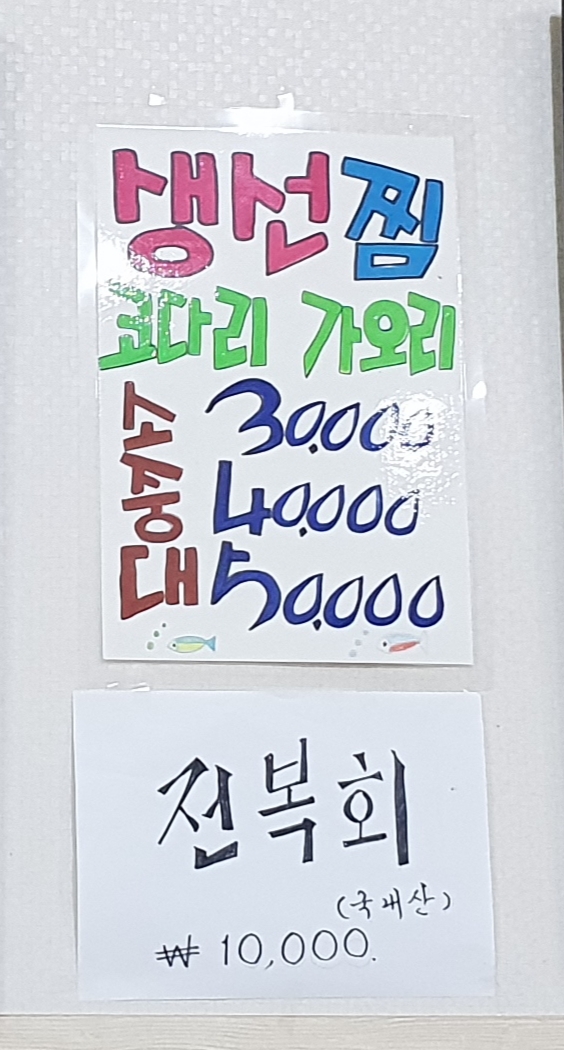 생선찜
코다리 가오리
소 30,000
중 40,000
대 50,000
전복회
(국내산)
₩ 10,000.